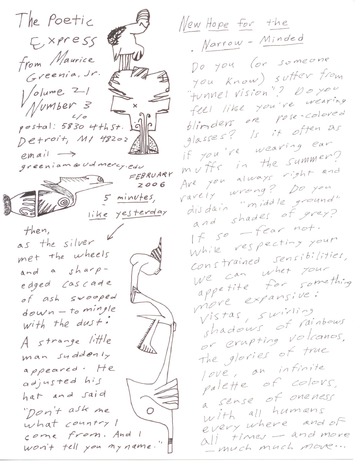 The Poetic
Express
from Maurice
Greenia, Jr.
Volume 21
Number 3
c/o
postal: 5830 4th St.
Detroit, MI 48202
email —
greeniam@udmercy.edu
FEBRUARY
2006
5 minutes,
like yesterday
then,
as the silver
met the wheels
and a sharp-
edged cascade
of ash swooped
down — to mingle
with the dust:
A strange little
man suddenly
appeared. He
adjusted his
hat and said
"Don't ask me
what country I
come from. And I
won't tell you my name."
New Hope for the
Narrow-Minded
Do you (or someone
you know) suffer from
"tunnel vision"? Do you
feel like you're wearing
blinders or rose-colored
glasses? Is it often as
if you're wearing ear
muffs in the summer?
Are you always right and
rarely wrong? Do you
disdain "middle ground"
and shades of grey?
If so — fear not.
While respecting your
constrained sensibilities,
we can whet your
appetite for something
more expansive:
vistas, swirling
shadows of rainbows
or erupting volcanos,
the glories of true
love, an infinite
palette of colors,
a sense of oneness
with all humans
everywhere and of
all times — and more
— much much more...